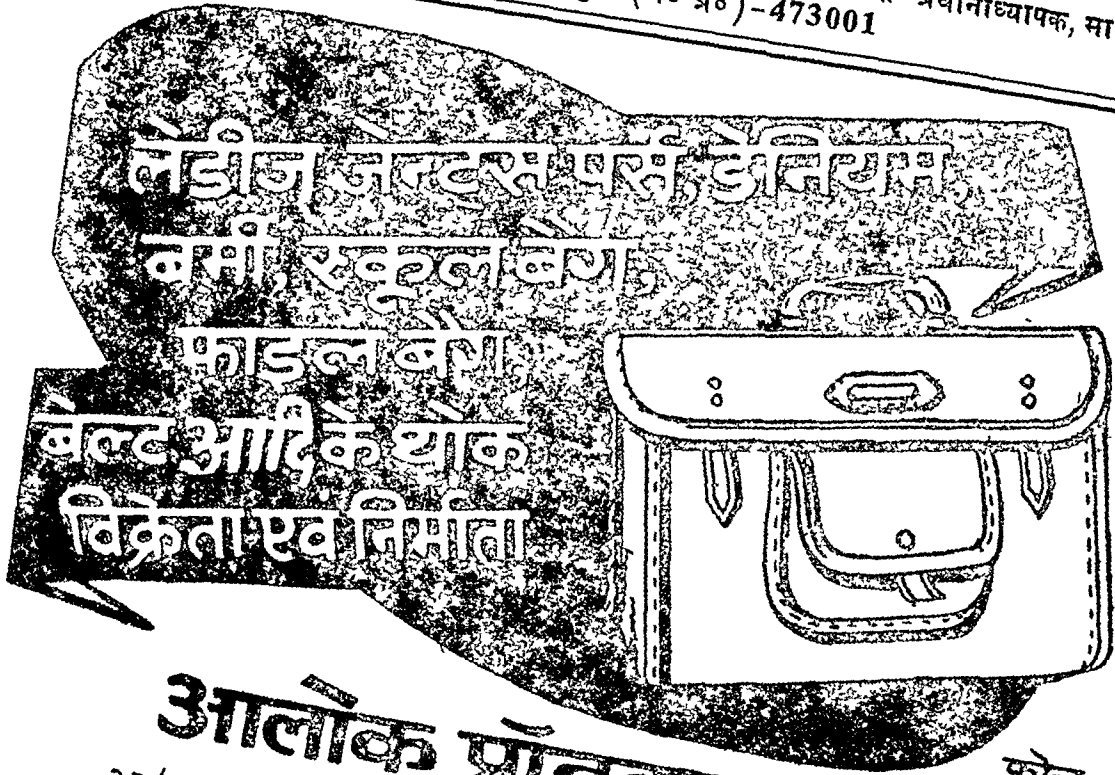 (म० प्र०)-473001
प्रधानाध्यापक, मा
लेडीज, जेन्टस पर्स, डेनियम,
बर्मी, स्कूल बेग,
फाइल बेग,
बेल्ट आदि के थोक
विक्रेता एवं निर्माता
आलोक